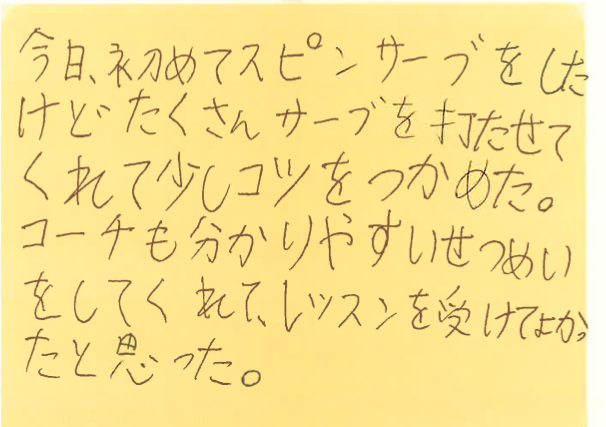 今日、初めてスピンサーブをした
けどたくさんサーブを打たせて
くれて少しコツをつかめた。
コーチも分かりやすいせつめい
をしてくれて、レッスンを受けてよかっ
たと思った。